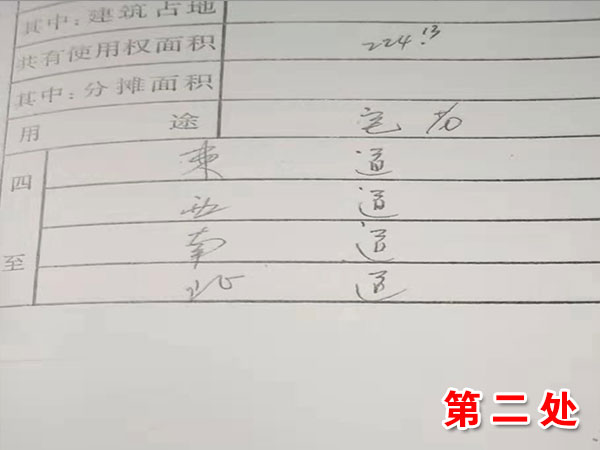 其中:建筑占地
共有使用权面积 224.13
其中:分摊面积
用途 宅
四至
东 道
西 道
南 道
北 道
第二处